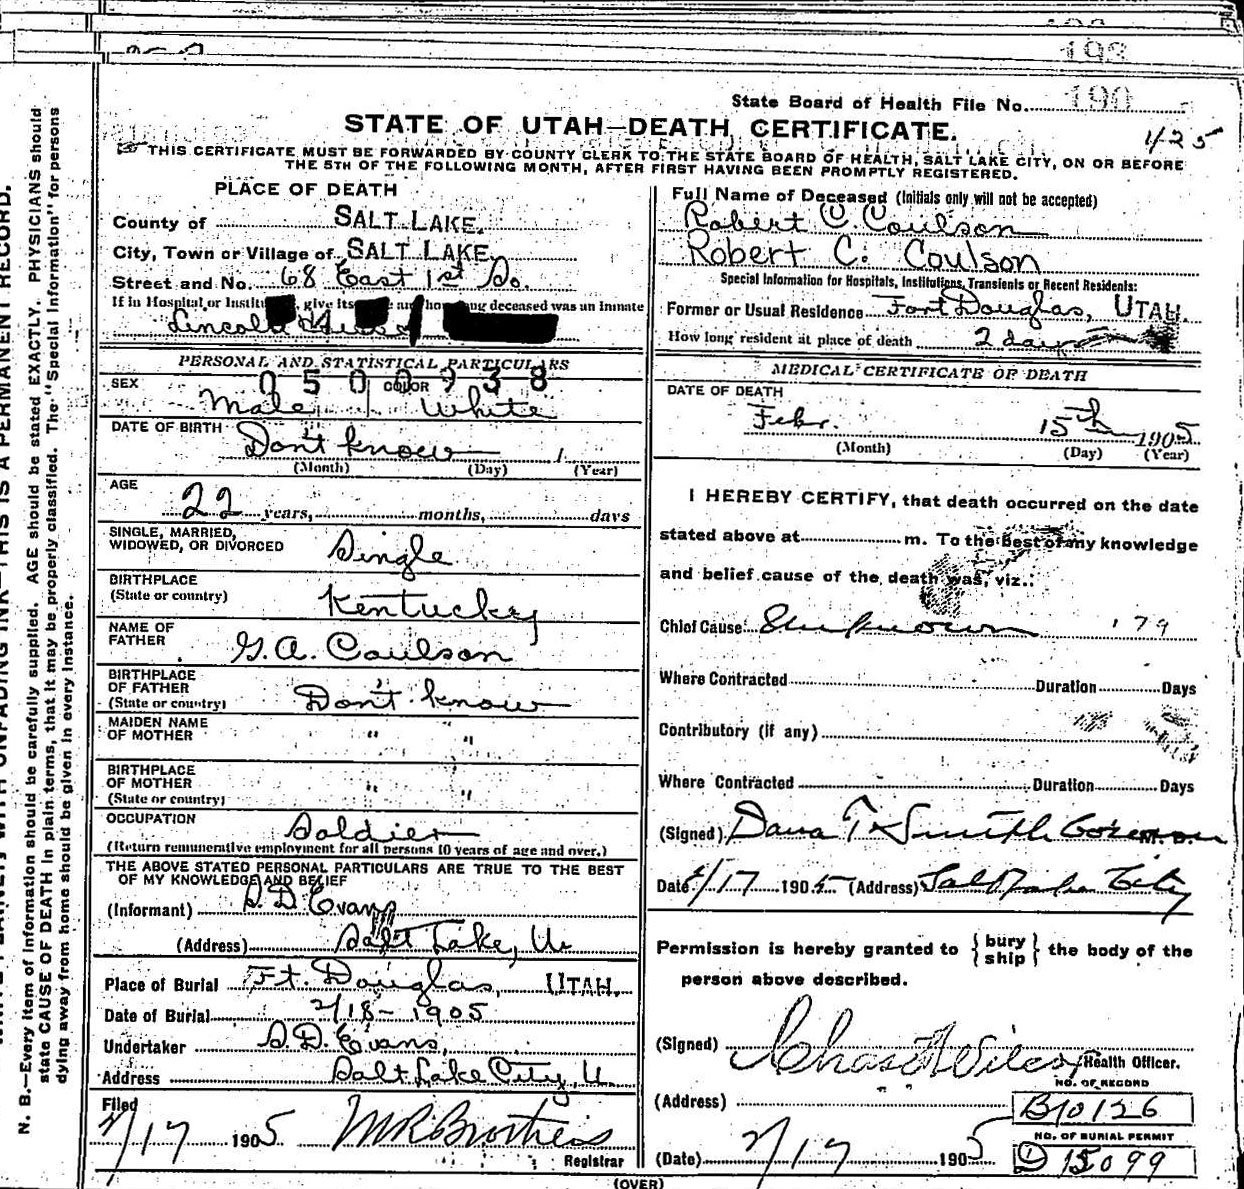 193
State Board of Health File No. 190
425
STATE OF UTAH—DEATH CERTIFICATE.
THIS CERTIFICATE MUST BE FORWARDED BY COUNTY CLERK TO THE STATE BOARD OF HEALTH, SALT LAKE CITY, ON OR BEFORE
THE 5TH OF THE FOLLOWING MONTH, AFTER FIRST HAVING BEEN PROMPTLY REGISTERED.
PLACE OF DEATH
County of SALT LAKE.
City, Town or Village of SALT LAKE.
Street and No. 68 East 1st So.
If in Hospital or give its and how long deceased was an inmate
Lincoln
PERSONAL AND STATISTICAL PARTICULARS
0500938
SEX Male COLOR White
DATE OF BIRTH Don't know
(Month) (Day) (Year)
AGE
22 years, months, days
SINGLE, MARRIED,
WIDOWED, OR DIVORCED Single
BIRTHPLACE
(State or country) Kentucky
NAME OF
FATHER G. A. Coulson
BIRTHPLACE
OF FATHER
(State or country) Don't know
MAIDEN NAME
OF MOTHER " "
BIRTHPLACE
OF MOTHER
(State or country) " "
OCCUPATION Soldier
(Return remunerative employment for all persons 10 years of age and over.)
THE ABOVE STATED PERSONAL PARTICULARS ARE TRUE TO THE BEST
OF MY KNOWLEDGE AND BELIEF
(Informant) S. D. Evans
(Address) Salt Lake, U.
Place of Burial Ft. Douglas, UTAH.
Date of Burial 2/18-1905
Undertaker S. D. Evans,
Address Salt Lake City, U.
Filed
2/17 1905 Registrar
Full Name of Deceased (Initials only will not be accepted)
Robert C. Coulson
Robert C. Coulson
Special Information for Hospitals, Institutions, Transients or Recent Residents:
Former or Usual Residence Fort Douglas, UTAH.
How long resident at place of death 2 days
MEDICAL CERTIFICATE OF DEATH
DATE OF DEATH
Febr. 15th 1905
(Month) (Day) (Year)
I HEREBY CERTIFY, that death occurred on the date
stated above at m. To the best of my knowledge
and belief cause of the death was, viz.:
Chief Cause Unknown 179
Where Contracted Duration Days
Contributory (if any)
Where Contracted Duration Days
(Signed) Dana T. Smith Coroner M. D.
Date 2/17 1905 (Address) Salt Lake City
Permission is hereby granted to {bury
ship} the body of the
person above described.
(Signed) Chas Wilcox Health Officer.
NO. OF RECORD
(Address) B10126
NO. OF BURIAL PERMIT
(Date) 2/17 1905 15099
(OVER)
N. B.—Every item of information should be carefully supplied. AGE should be stated EXACTLY. PHYSICIANS should
state CAUSE OF DEATH in plain terms, that it may be properly classified. The "Special Information" for persons
dying away from home should be given in every instance.
WITH UNFADING INK—THIS IS A PERMANENT RECORD.